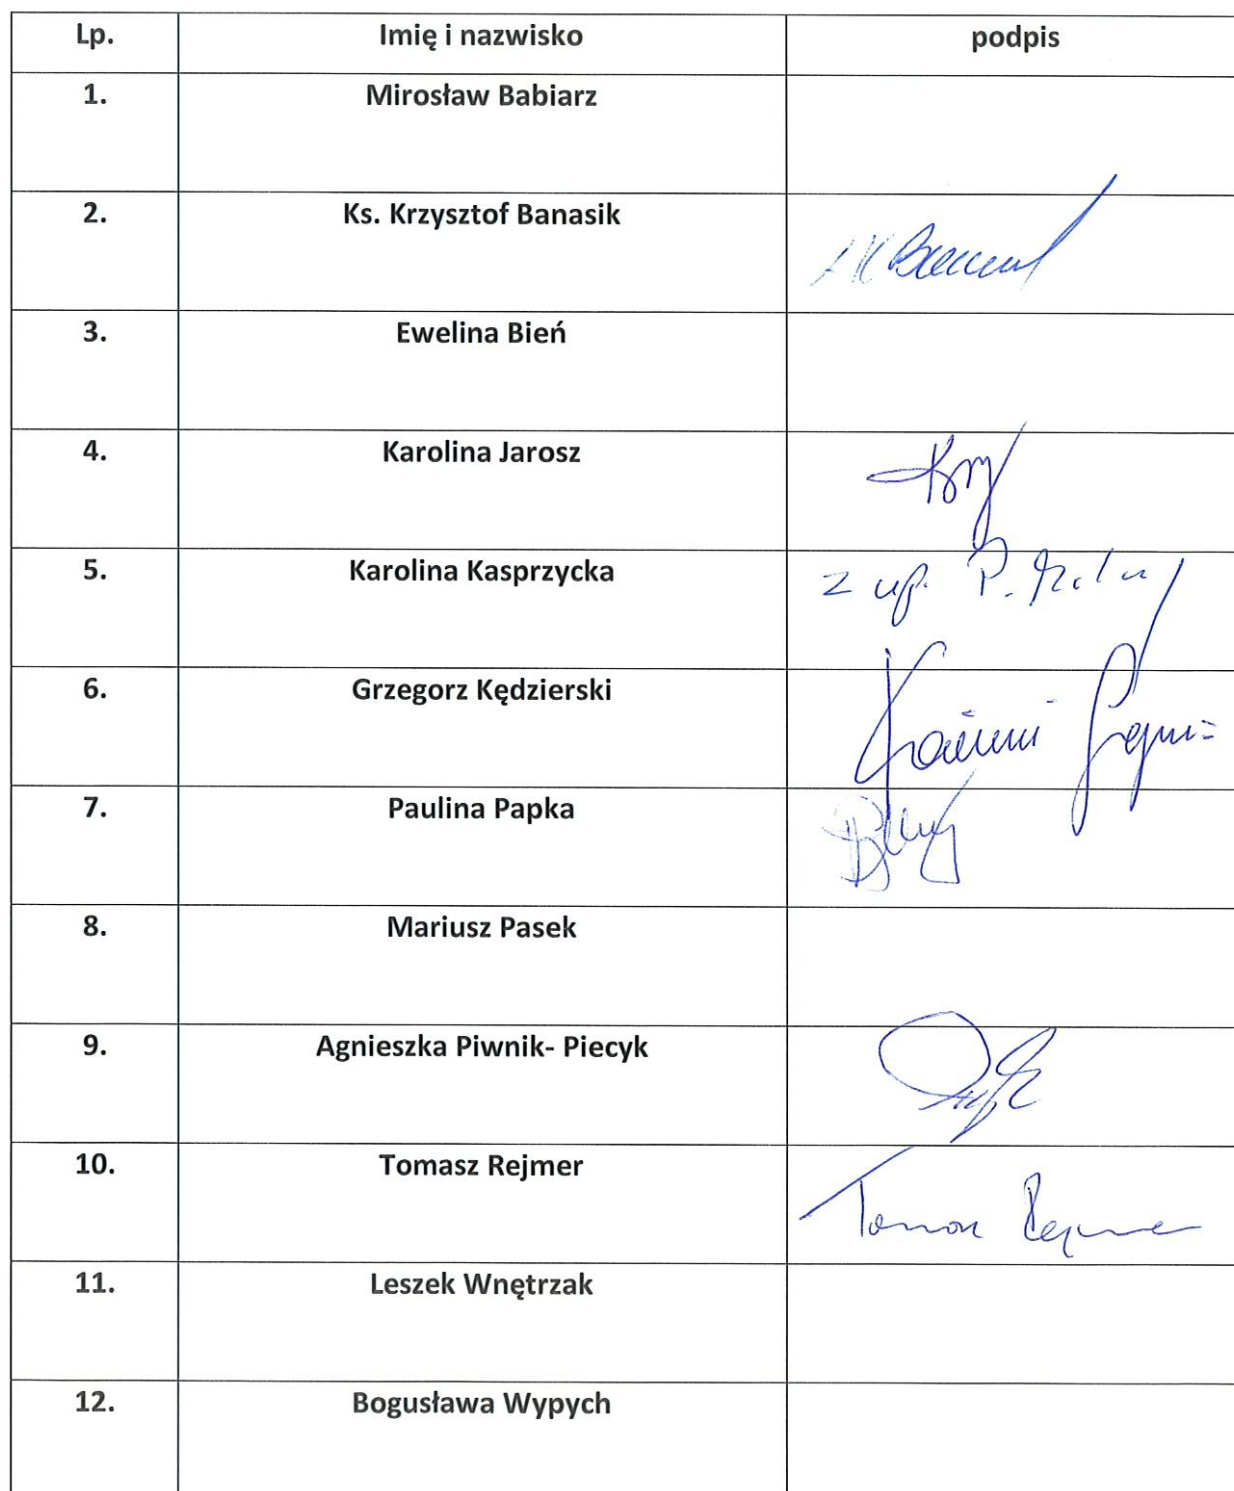 Lp. Imię i nazwisko podpis
1. Mirosław Babiarz
2. Ks. Krzysztof Banasik
3. Ewelina Bień
4. Karolina Jarosz
5. Karolina Kasprzycka z up. P.
6. Grzegorz Kędzierski
7. Paulina Papka
8. Mariusz Pasek
9. Agnieszka Piwnik- Piecyk
10. Tomasz Rejmer
11. Leszek Wnętrzak
12. Bogusława Wypych